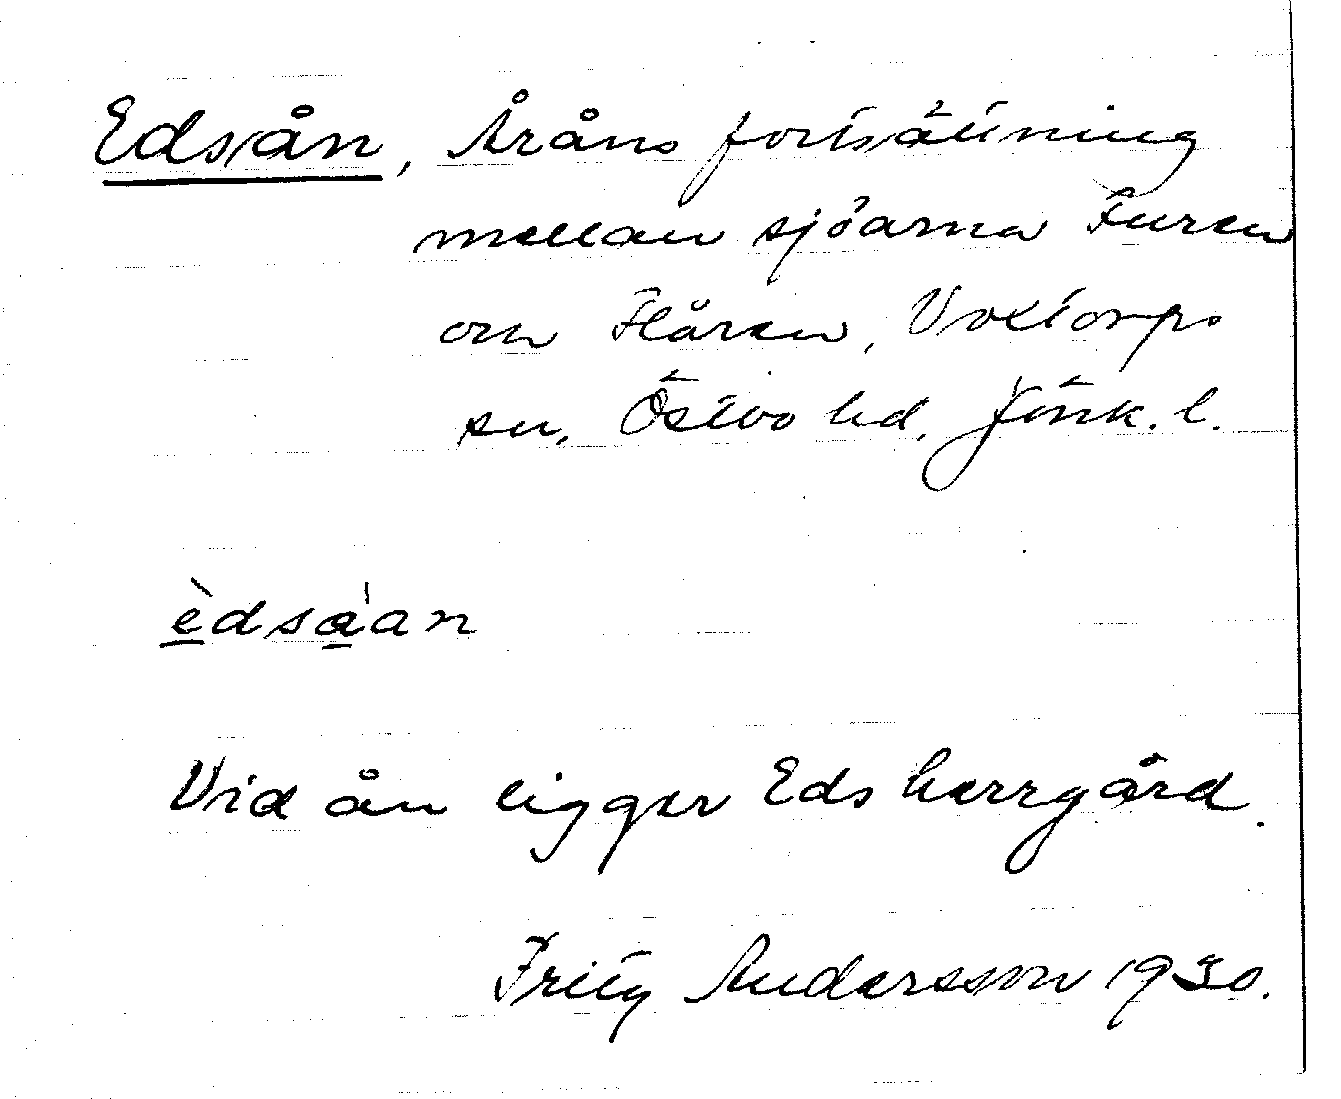 Edsån, Åråns fortsättning
mellan sjöarna Furen
och Flåren, Voxtorps
sn, Östbo hd, Jönk. l.
èdsa̍an
Vid ån ligger Eds herrgård.
Fritz Andersson 1930.